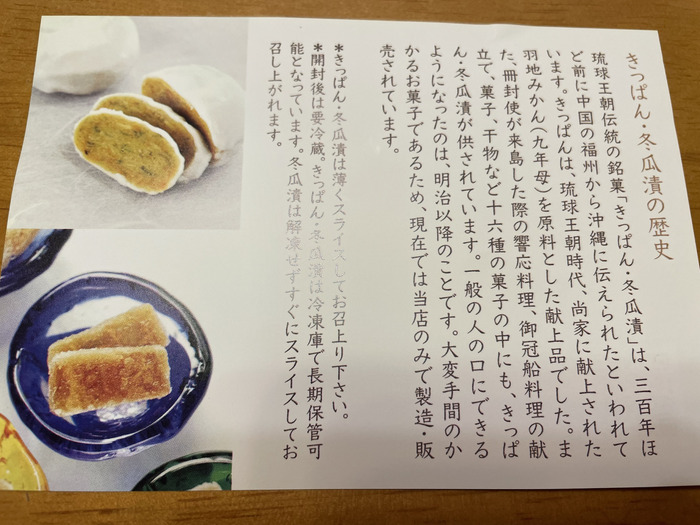 きっぱん・冬瓜漬の歴史
琉球王朝伝統の銘菓「きっぱん・冬瓜漬」は、三百年ほ
ど前に中国の福州から沖縄に伝えられたといわれて
います。きっぱんは、琉球王朝時代、尚家に献上された
羽地みかん(九年母)を原料とした献上品でした。ま
た、冊封使が来島した際の饗応料理、御冠船料理の献
立て、菓子、干物など十六種の菓子の中にも、きっぱ
ん・冬瓜漬が供されています。一般の人の口にできる
ようになったのは、明治以降のことです。大変手間のか
かるお菓子であるため、現在では当店のみで製造・販
売されています。
＊きっぱん・冬瓜漬は薄くスライスしてお召上り下さい。
＊開封後は要冷蔵。きっぱん・冬瓜漬は冷凍庫で長期保管可
能となっています。冬瓜漬は解凍せずすぐにスライスしてお
召し上がれます。